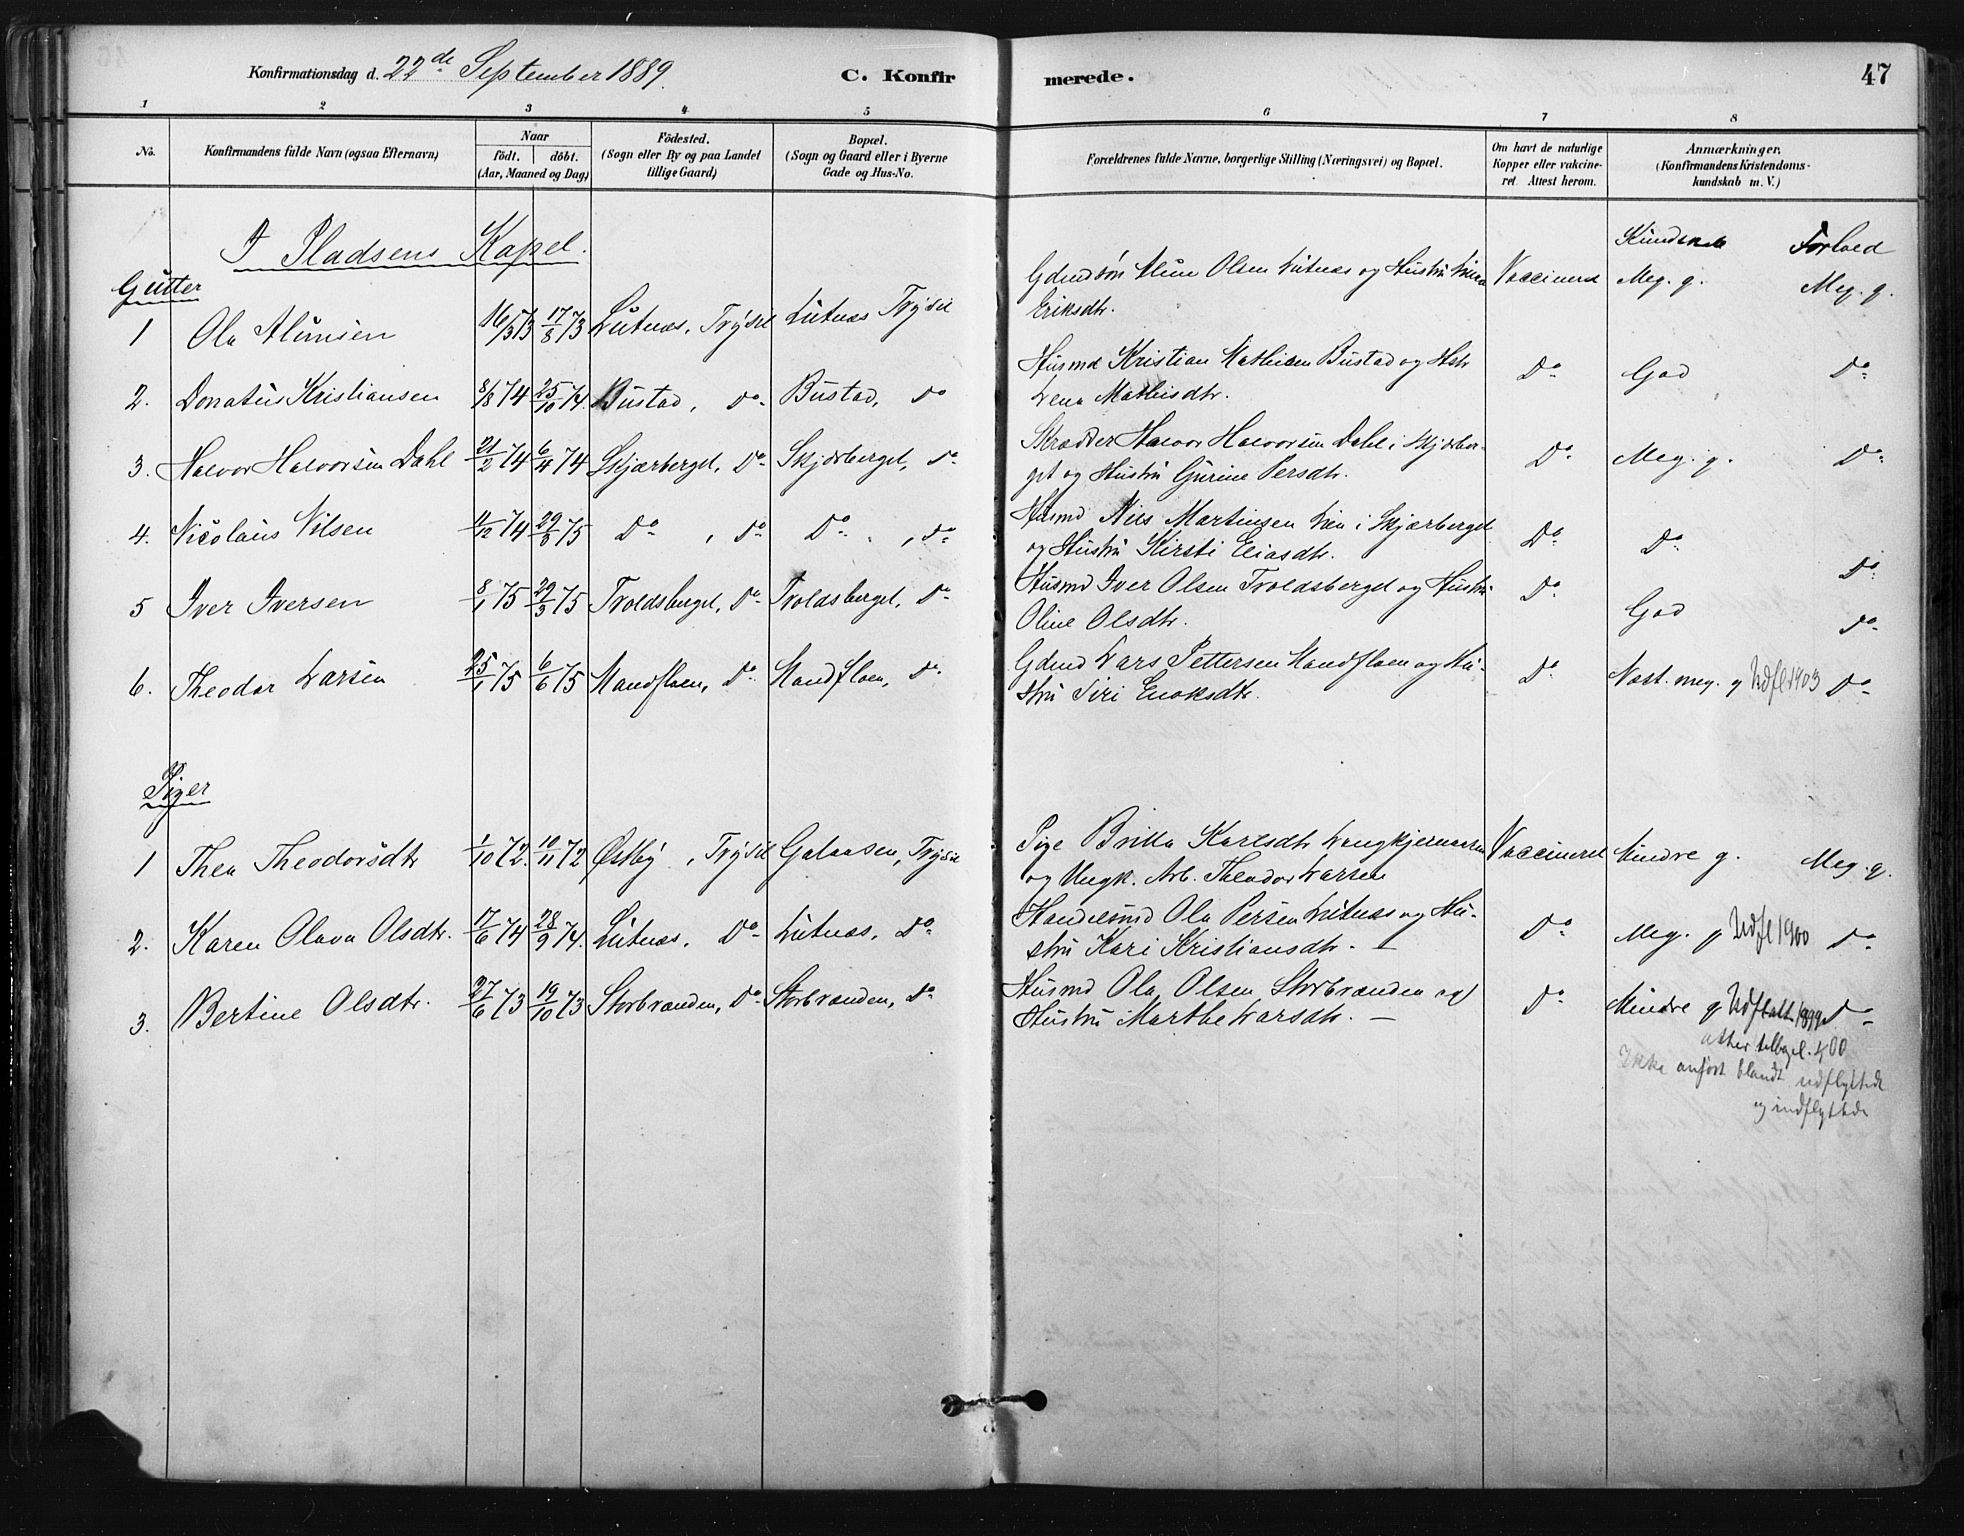 Konfirmationsdag d. 22de September 1889. C. Konfirmerede. 47
1 2 3 4 5 6 7 8
No. Konfirmandens fulde Navn (ogsaa Efternavn) Naar födt. döbt. (Aar, Maaned og Dag) Födested. (Sogn eller By og paa Landet tillige Gaard) Bopæl. (Sogn og Gaard eller i Byerne Gade og Hus-No. Forældrenes fulde Navne, borgerlige Stilling (Næringsvei) og Bopæl. Om havt de naturlige Kopper eller vakcineret. Attest herom. Anmærkninger. (Konfirmandens Kristendomskundskab m. V.)
I Pladsens Kapel.
Kundskab Forhold
Gutter
1 Ola Alunsen 16/3 73 17/8 73 Lutnæs, Trysil Lutnæs Trysil Olsen Lutnæs og Hustru Eriksdtr. Vaccineret Meg. g. Meg. g.
2. Donatus Kristiansen 8/8 74 25/10 74. Bustad, Do. Bustad, Do Husmd Kristian Mathisen Bustad og Hstr Lena Mathisdtr. Do. God Do.
3. Halvor Halvorsen Dahl 21/2 74 6/4 74 Skjærberget, Do. Skjærberget, Do. Skrædder Halvor Halvorsen Dahl i Skjærberget og Hustru Gurine Persdtr. Do. Meg. g. Do.
4. Nicolaus Nilsen 11/12 74 29/3 75 Do , Do. Do. , Do. Husmd Nils Martinsen Lien i Skjærberget og Hustru Kirsti Eliasdtr. Do. Do. Do.
5 Iver Iversen 8/1 75 29/3 75 Troldsberget, Do. Troldsberget, Do. Husmd Iver Olsen Troldsberget og Hustru Oline Olsdtr. Do. God Do.
6. Theodor Larsen 25/1 75 6/6 75 Mandfloen, Do. Mandfloen, Do. Gdmd Lars Pettersen Mandfloen og Hustru Siri Enoksdtr. Do. Næst. meg. g Udfl 1903 Do.
Piger
1 Thea Theodorsdtr 1/10 72. 10/11 72 Østby, Trysil Galaasen, Trysil Pige Britta Karlsdtr og Ungk. Arb. Theodor Larsen Vaccineret Mindre g. Meg. g.
2. Karen Olava Olsdtr. 17/6 74 28/9 74. Lutnæs, Do. Lutnæs, Do. Handelsmd Ola Persen Lutnæs og Hustru Kari Kristiansdtr. Do. Meg. g Udfl 1900 Do.
3. Bertine Olsdtr. 27/6 73 19/10 73 Storbrænden, Do. Storbrænden, Do. Husmd Ola Olsen Storbrænden og Hustru Marthe Larsdtr. Do. Mindre g Udflytt 1899 Do.
Ikke anført blandt udflyttede
og indflyttede